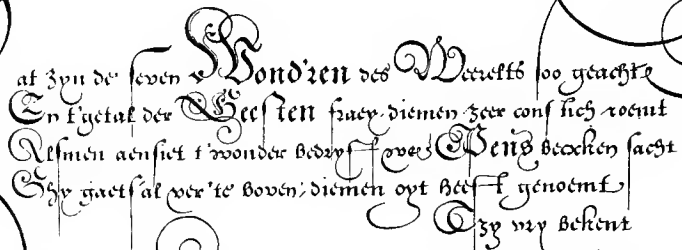 at zyn de seven Wond'ren des Weerelts soo geacht
En t'getal der Geesten fraey, diemen zeer constich roemt
Alsmen aensiet t'wonder bedryff, uwes Pens becken sacht
Ghy gaets'al ver're boven, diemen oyt heeft genoemt
Tzy vry bekent